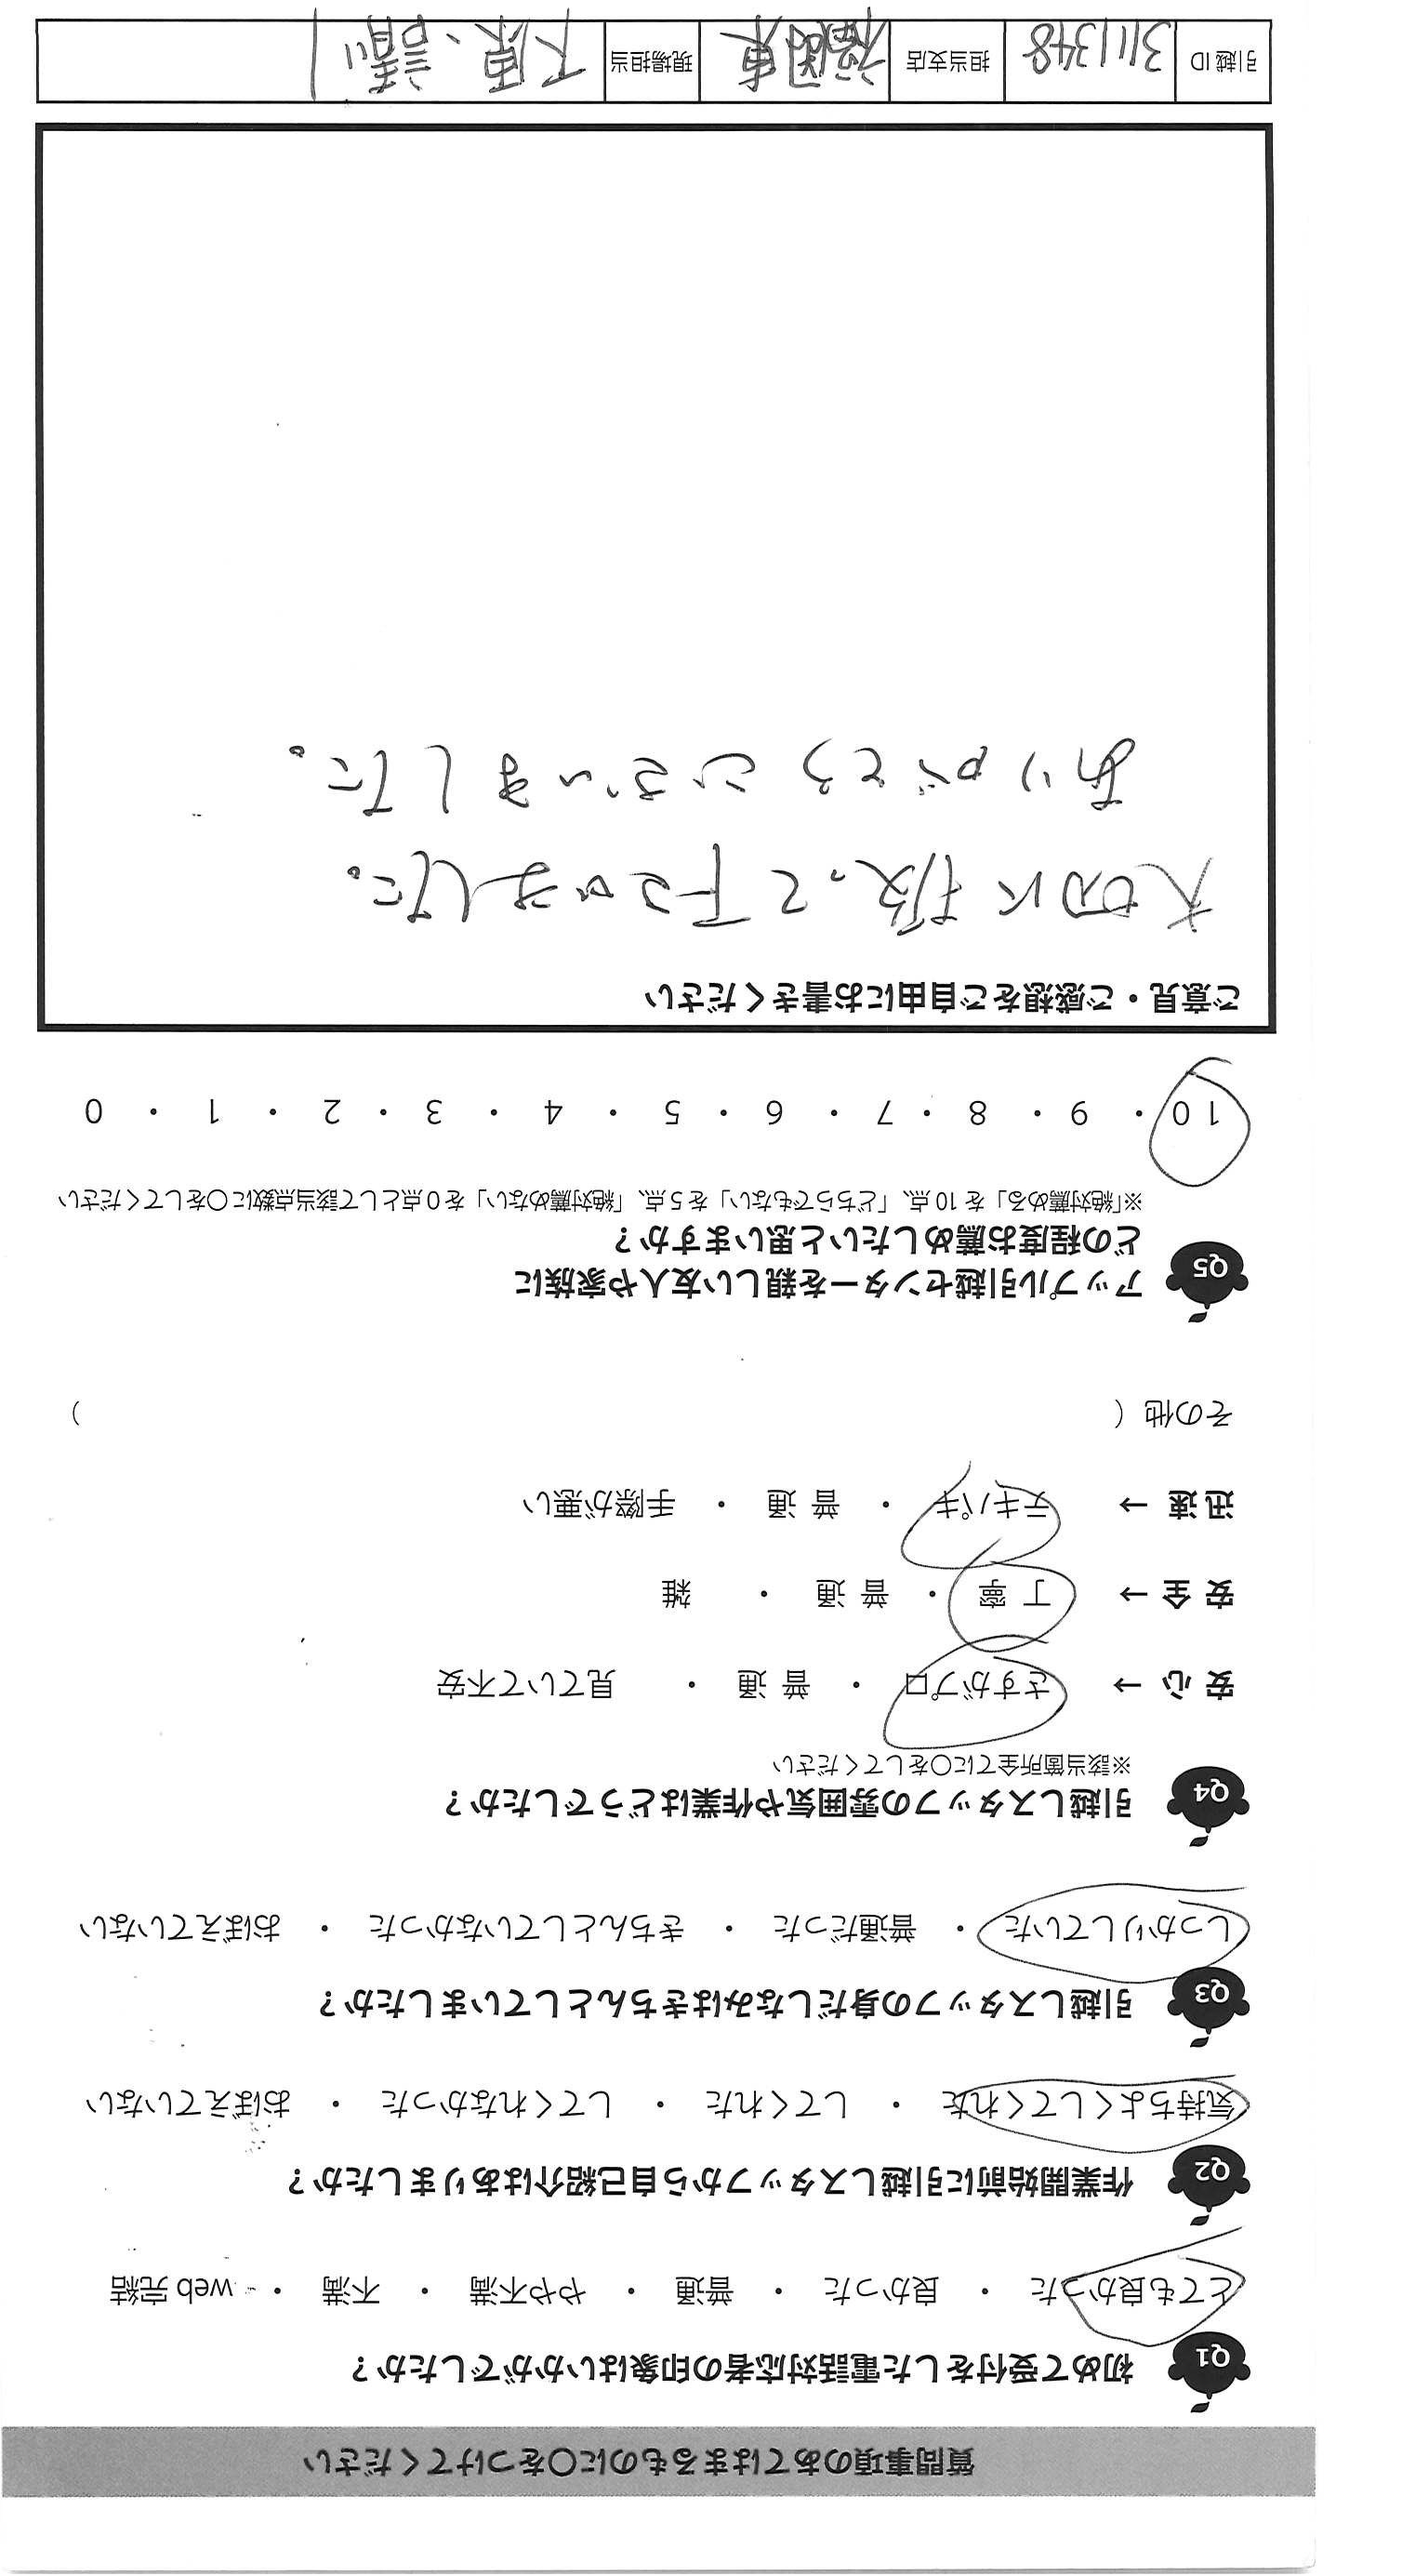 質問事項のあてはまるものに〇をつけてください
Q1 初めて受付をした電話対応者の印象はいかがでしたか？
とても良かった ・ 良かった ・ 普通 ・ やや不満 ・ 不満 ・ web 完結
Q2 作業開始前に引越しスタッフから自己紹介はありましたか？
気持ちよくしてくれた ・ してくれた ・ してくれなかった ・ おぼえていない
Q3 引越しスタッフの身だしなみはきちんとしていましたか？
しっかりしていた ・ 普通だった ・ きちんとしていなかった ・ おぼえていない
Q4 引越しスタッフの雰囲気や作業はどうでしたか？
※該当箇所全てに〇をしてください
安 心 → さすがプロ ・ 普 通 ・ 見ていて不安
安 全 → 丁 寧 ・ 普 通 ・ 雑
迅 速 → テキパキ ・ 普 通 ・ 手際が悪い
その他（ ）
Q5 アップル引越センターを親しい友人や家族に
どの程度お薦めしたいと思いますか？
※「絶対薦める」を 10 点、「どちらでもない」を 5 点、「絶対薦めない」を 0 点として該当点数に〇をしてください
10 ・ 9 ・ 8 ・ 7 ・ 6 ・ 5 ・ 4 ・ 3 ・ 2 ・ 1 ・ 0
ご意見・ご感想をご自由にお書きください
大切に扱って下さいました。
ありがとうございました。
引越 ID 3111348 担当支店 福岡東 現場担当 下原、